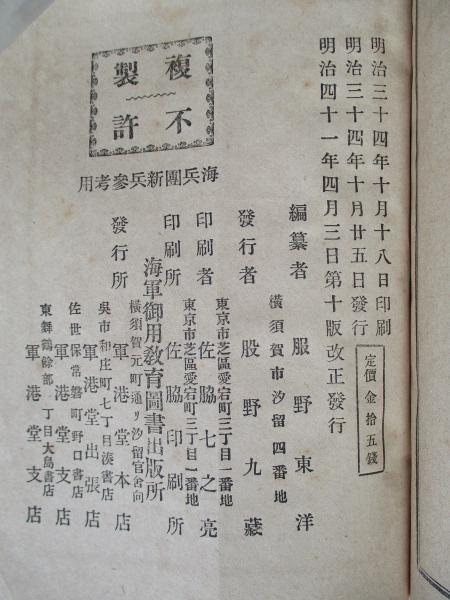 明治三十四年十月十八日印刷
明治三十四年十月廿五日發行
明治四十一年四月三日第十版改正發行
定價金拾五錢
編纂者 服野東洋
横須賀市汐留四番地
發行者 股野九藏
東京市芝區愛宕町三丁目一番地
印刷者 佐脇七之亮
東京市芝區愛宕町三丁目一番地
印刷所 佐脇印刷所
海軍御用敎育圖書出版所
發行所
横須賀元町通リ汐留官舍向
軍港堂本店
吳市和庄町七丁目湊書店
軍港堂出張店
佐世保常磐町野口書店
軍港堂支店
東舞鶴餘部 丁目大島書店
軍港堂支店
複製不許
海兵團新兵參考用